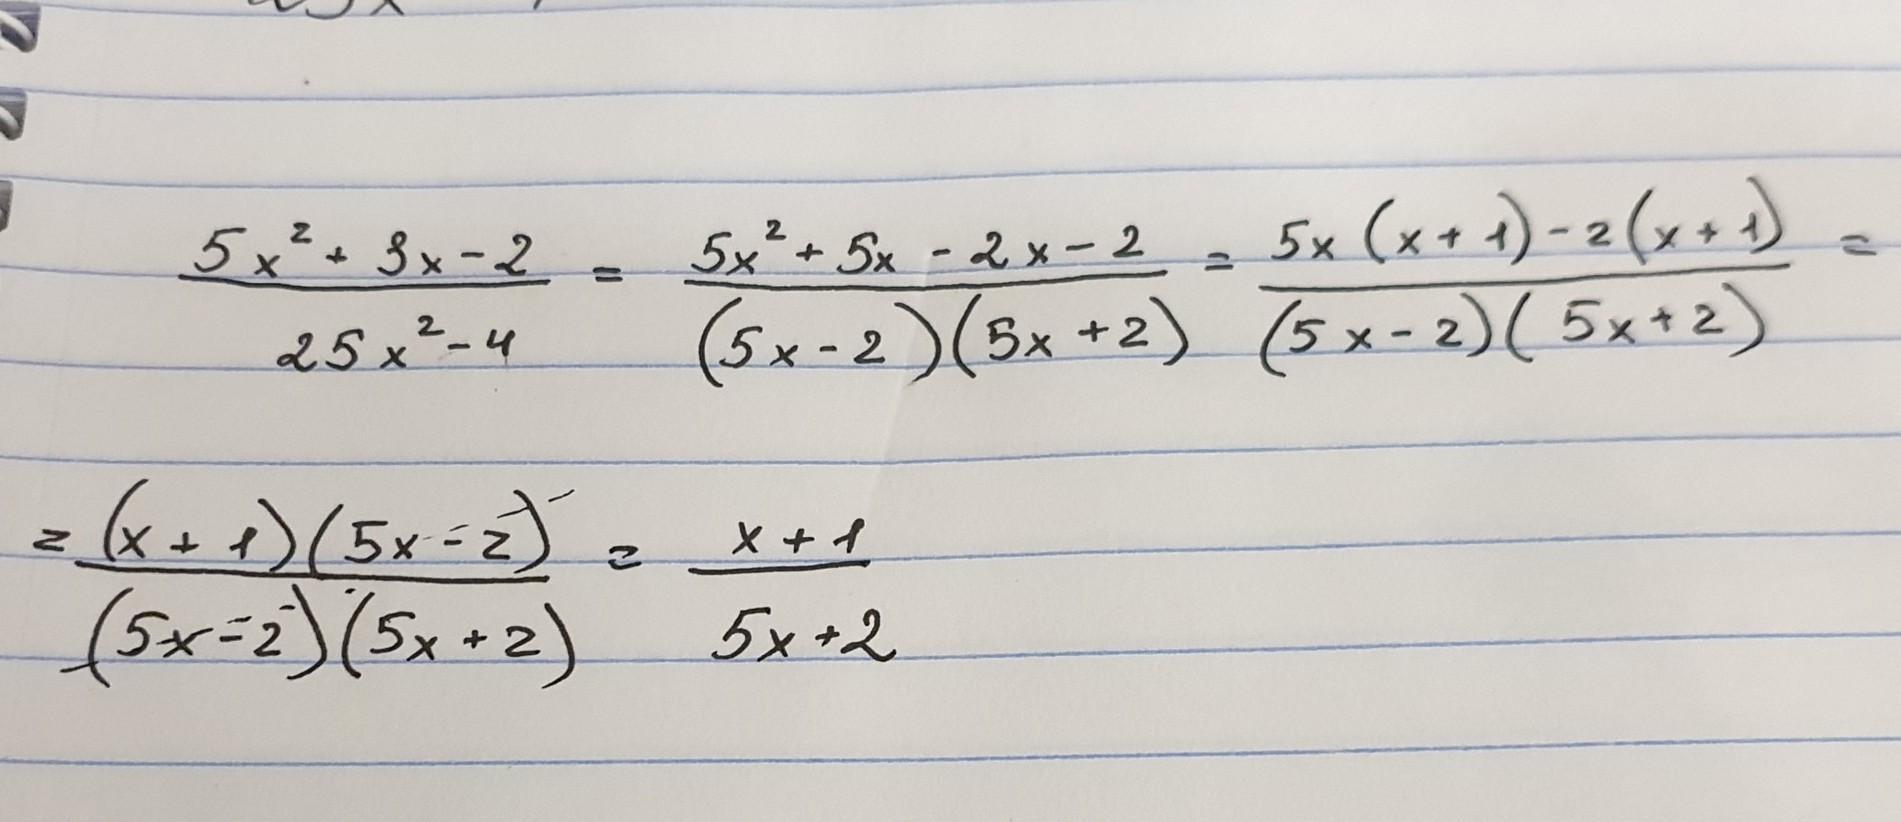 (5x² + 3x - 2)/(25x² - 4) = (5x² + 5x - 2x - 2)/((5x - 2)(5x + 2)) = (5x(x + 1) - 2(x + 1))/((5x - 2)(5x + 2)) =
= ((x + 1)(5x - 2))/((5x - 2)(5x + 2)) = (x + 1)/(5x + 2)